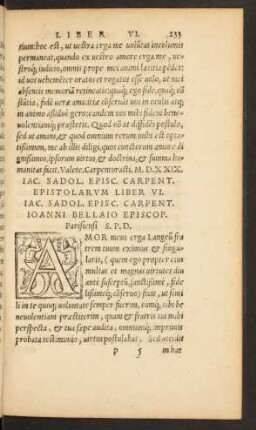 LIBER VI. 233
tium: hoc est, ut uestra erga me uolũtas incolumis
permaneat, quando ex uestro amore erga me, ue-
stroq́; iudicio, omnis prope mei animi lætitia pēdet:
id uos uehementer oratos et rogatos esse uolo, ut mei
absentis memoriã retineatis: quæq́; ego fide, quæq́; cõ
stãtia, fide uera amicitia cõseruã uos in oculis atq́;
in animo assiduè gero: eandem uos mihi fidem beneuo-
lentiamq́; præstetis. Quod nõ ut diffidēs postulo,
sed ut amans, & quod omnium rerum mihi est opta-
tissimum, me ab illis diligi, quos cunctorum amore di-
gnissimos, ipsorum uirtus, & doctrina, & summa hu-
manitas facit. Valete. Carpentoracti. M.D.XXIX.
IAC. SADOL. EPISC. CARPENT.
EPISTOLARVM LIBER VI.
IAC. SADOL. EPISC. CARPENT.
IOANNI BELLAIO EPISCOP.
Parisiensi S. P. D.
AMOR meus erga Langeũ fra
trem tuum eximius & singu-
laris, (quem ego propter eius
multas et magnas uirtutes diu
ante susceptũ, sanctissimè, fide
lissimeq́; cõseruo) facit, ut simi
li in te quoq; uoluntate semper fuerim, eamq́; tibi be
neuolentiam præstiterim, quam & fratris tui mihi
perspecta, & tua sæpe audita, omniumq́; imprimis
probata testimonio, uirtus postulabat. Sed accedit
P 5 in hac